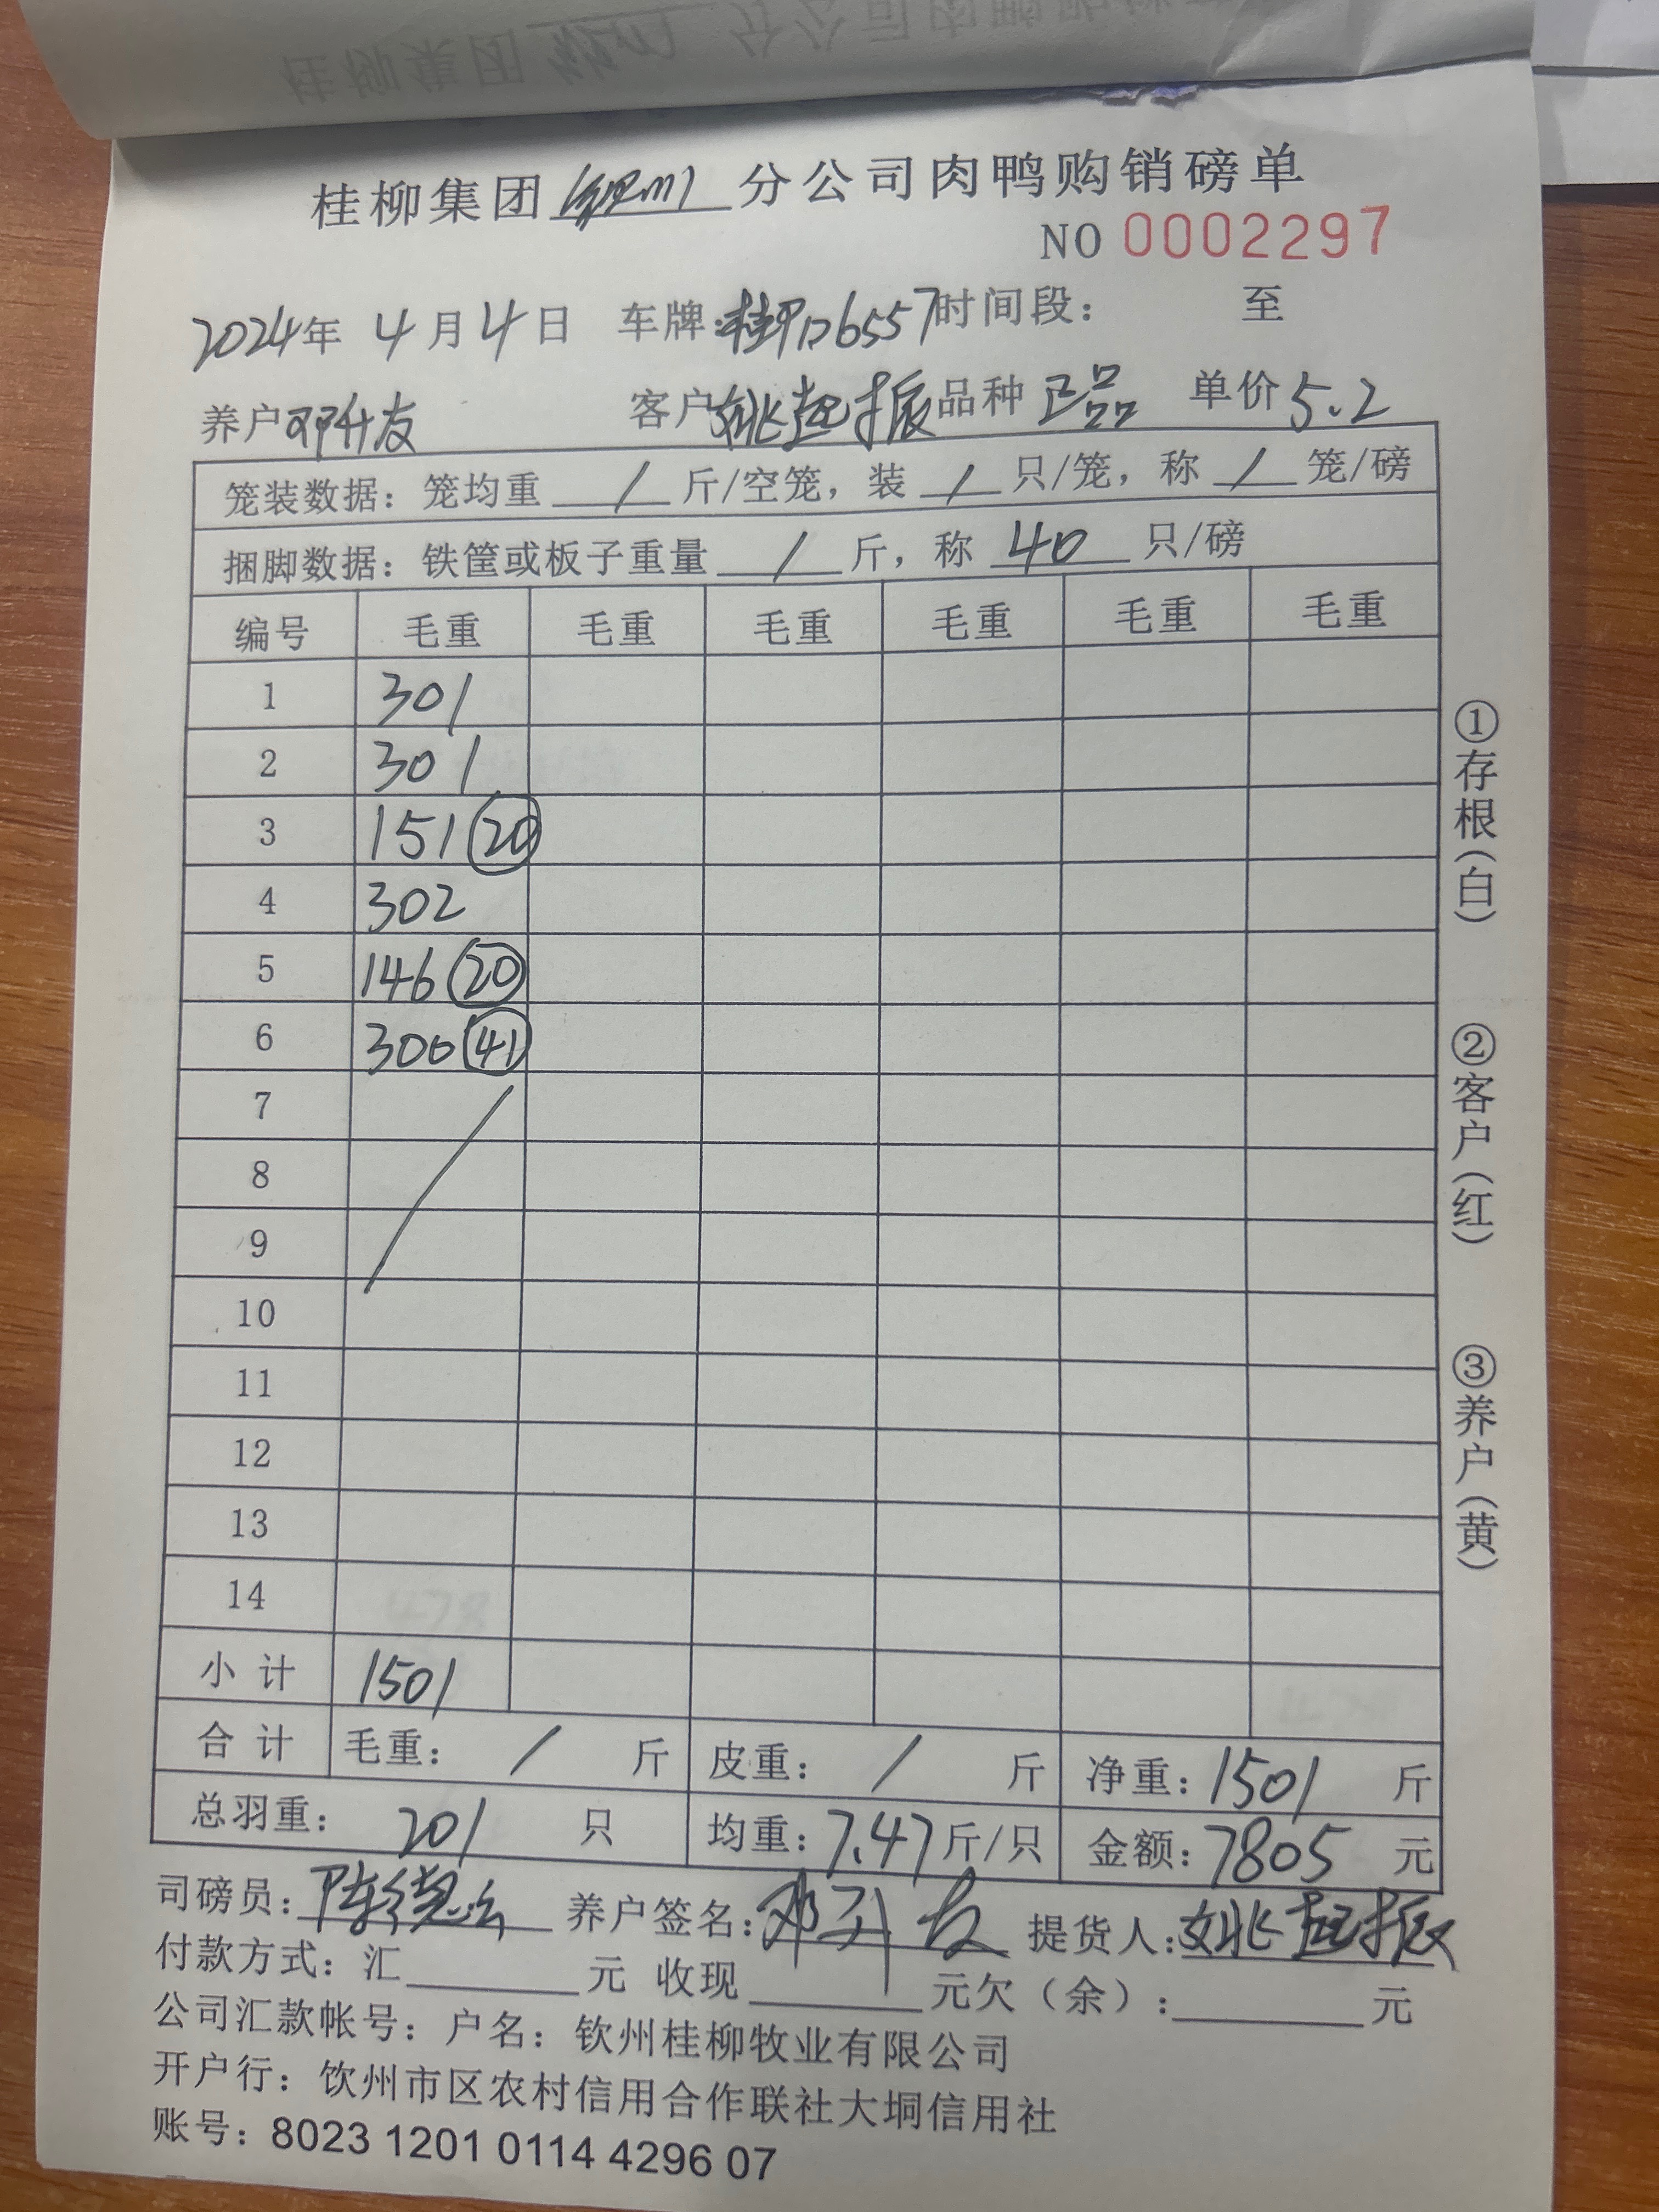 桂柳集团 钦州 分公司肉鸭购销磅单
NO 0002297
2024年 4月4日 车牌:桂PD6557 时间段: 至
养户 邓升友 客户 姚起振 品种 正品 单价 5.2
笼装数据:笼均重 / 斤/空笼,装 / 只/笼,称 / 笼/磅
捆脚数据:铁筐或板子重量 / 斤,称 40 只/磅
编号 毛重 毛重 毛重 毛重 毛重 毛重
1 301
2 301
3 151 (20)
4 302
5 146 (20)
6 300 (41)
7
8
9
10
11
12
13
14
小计 1501
合计 毛重: / 斤 皮重: / 斤 净重:1501 斤
总羽重: 201 只 均重:7.47斤/只 金额:7805 元
司磅员:陈德 养户签名:邓升友 提货人:姚起振
付款方式:汇 元 收现 元欠(余): 元
公司汇款帐号:户名:钦州桂柳牧业有限公司
开户行:钦州市区农村信用合作联社大垌信用社
账号:8023 1201 0114 4296 07
①存根(白)
②客户(红)
③养户(黄)